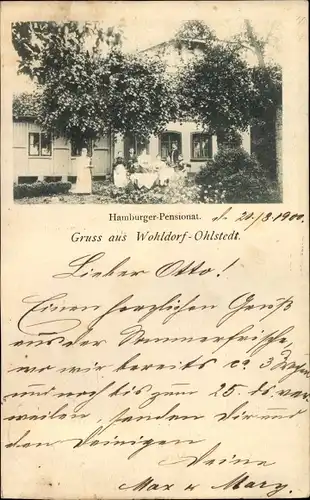 Hamburger-Pensionat. d. 20/8.1900.
Gruss aus Wohldorf-Ohlstedt.
Lieber Otto!
Einen herzlichen Gruß
aus der Sommerfrische,
wo wir bereits ca. 3
und noch bis zum 25. ds. ver-
weilen, senden Dir und
den Deinigen
Deine
Max u Mary.